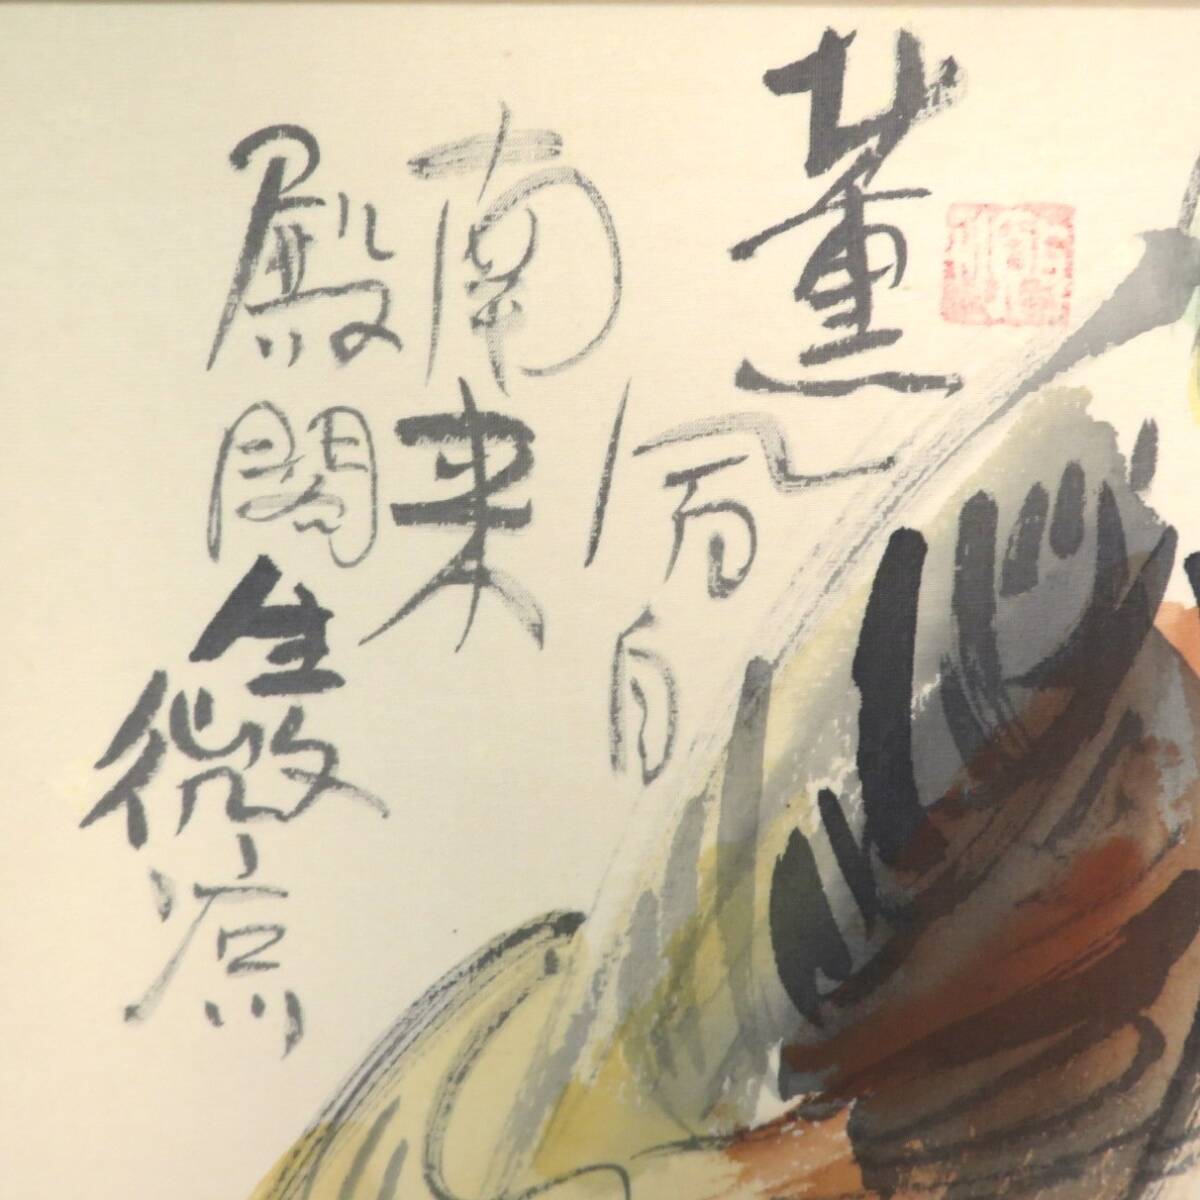 薫風自
南来
殿閣生微涼